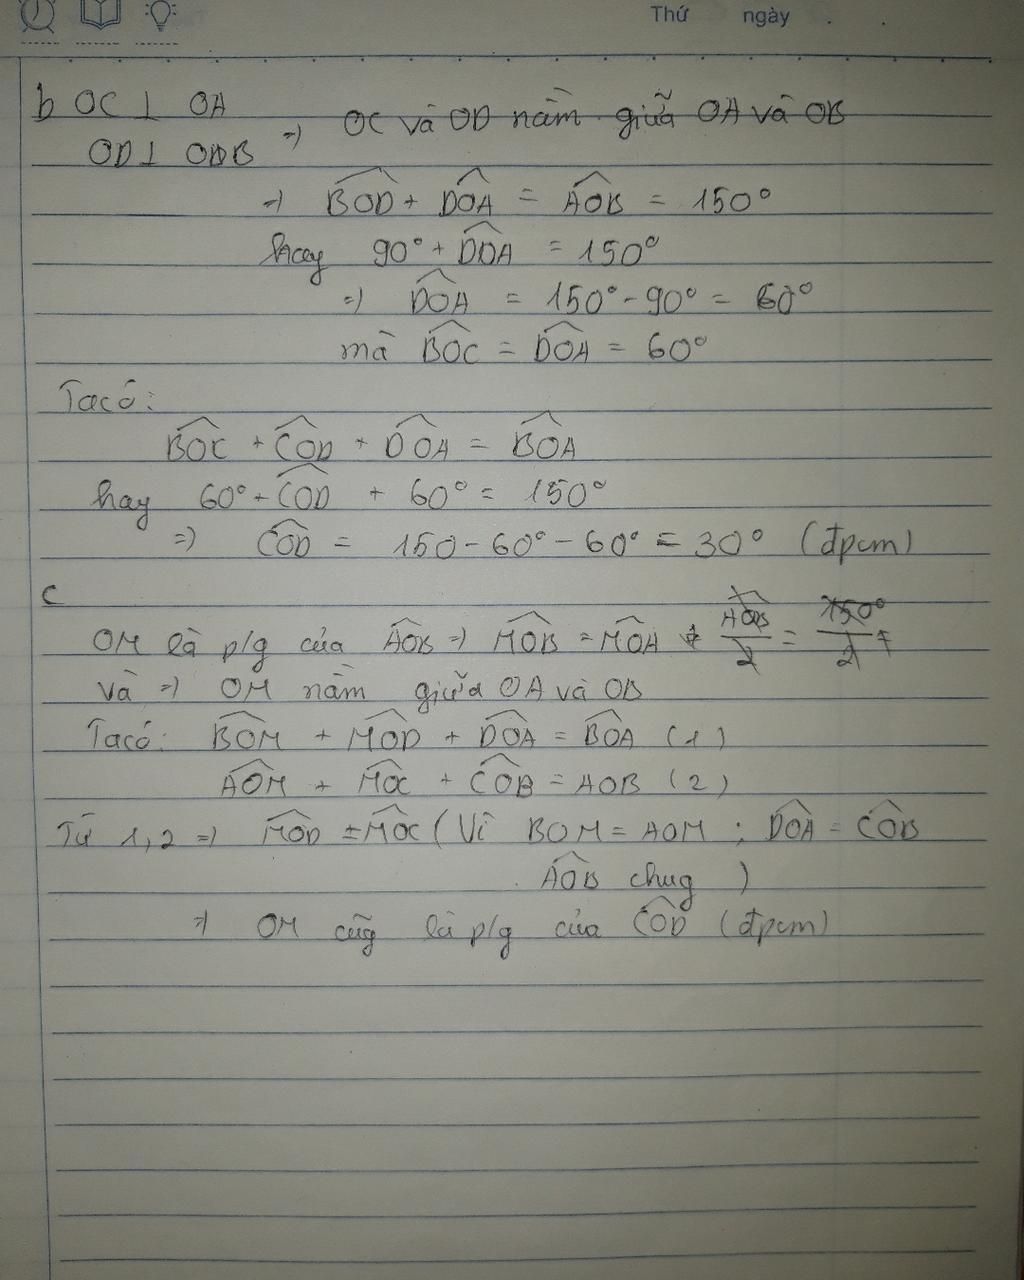 Thứ ngày . .
b OC ⊥ OA
OD ⊥ OB ⇒ OC và OD nằm giữa OA và OB
⇒ BOD^ + DOA^ = AOB^ = 150°
hay 90° + DOA^ = 150°
⇒ DOA^ = 150° - 90° = 60°
mà BOC^ = DOA^ = 60°
Ta có:
BOC^ + COD^ + DOA^ = BOA^
hay 60° + COD^ + 60° = 150°
⇒ COD^ = 150 - 60° - 60° = 30° (đpcm)
c
OM là p/g của AOB^ ⇒ MOB^ = MOA^
và ⇒ OM nằm giữa OA và OB
Ta có: BOM^ + MOD^ + DOA^ = BOA^ (1)
AOM^ + MOC^ + COB^ = AOB (2)
Từ 1, 2 ⇒ MOD^ = MOC^ (Vì BOM = AOM ; DOA^ = COB^
AOB^ chug )
⇒ OM cũg là p/g của COD^ (đpcm)